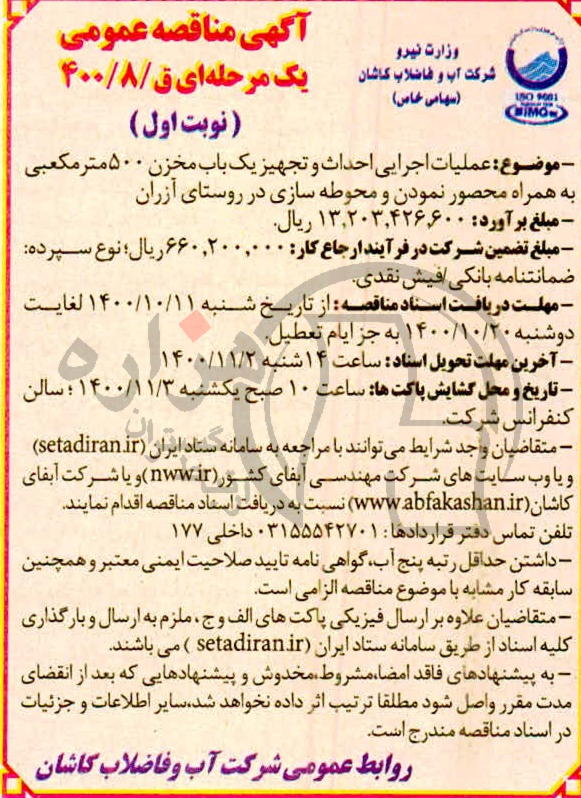 آگهی مناقصه عمومی
یک مرحله‌ای ق/۴۰۰/۸
(نوبت اول)
وزارت نیرو
شرکت آب و فاضلاب کاشان
(سهامی خاص)
ISO 9001
SIMC
– موضـوع: عملیات اجرایی احداث و تجهیز یک باب مخزن ۵۰۰ متر مکعبی
به همراه محصور نمودن و محوطه سازی در روستای آزران
– مبلغ برآورد: ۱۳,۲۰۳,۴۲۶,۶۰۰ ریال.
– مبلغ تضمین شرکت در فرآیند ارجاع کار: ۶۶۰,۲۰۰,۰۰۰ ریال؛ نوع سپرده:
ضمانتنامه بانکی/فیش نقدی.
– مهلت دریافت اسناد مناقصه: از تاریخ شنبه ۱۴۰۰/۱۰/۱۱ لغایت
دوشنبه ۱۴۰۰/۱۰/۲۰ به جز ایام تعطیل
– آخرین مهلت تحویل اسناد: ساعت ۱۴ شنبه ۱۴۰۰/۱۱/۲
– تاریخ و محل گشایش پاکت ها: ساعت ۱۰ صبح یکشنبه ۱۴۰۰/۱۱/۳ ؛ سالن
کنفرانس شرکت.
– متقاضیان واجد شرایط می‌توانند با مراجعه به سامانه ستاد ایران (setadiran.ir)
و یا وب سـایت های شـرکت مهندسـی آبفای کشـور(nww.ir) و یا شـرکت آبفای
کاشان(www.abfakashan.ir) نسبت به دریافت اسناد مناقصه اقدام نمایند.
تلفن تماس دفتر قراردادها: ۰۳۱۵۵۵۴۲۷۰۱ داخلی ۱۷۷
– داشتن حداقل رتبه پنج آب، گواهی نامه تایید صلاحیت ایمنی معتبر و همچنین
سابقه کار مشابه با موضوع مناقصه الزامی است.
– متقاضیان علاوه بر ارسال فیزیکی پاکت های الف و ج، ملزم به ارسال و بارگذاری
کلیه اسناد از طریق سامانه ستاد ایران (setadiran.ir ) می باشند.
– به پیشنهادهای فاقد امضا،مشروط،مخدوش و پیشنهادهایی که بعد از انقضای
مدت مقرر واصل شود مطلقا ترتیب اثر داده نخواهد شد،سایر اطلاعات و جزئیات
در اسناد مناقصه مندرج است.
روابط عمومی شرکت آب و فاضلاب کاشان
هزاره